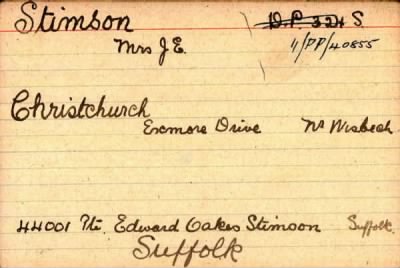 Stimson D.P. 324 S
Mrs J E. 11/DP/40855
Christchurch
Exmore Drive Nr Wisbech
44001 Pte. Edward Oakes Stimson Suffolk.
Suffolk